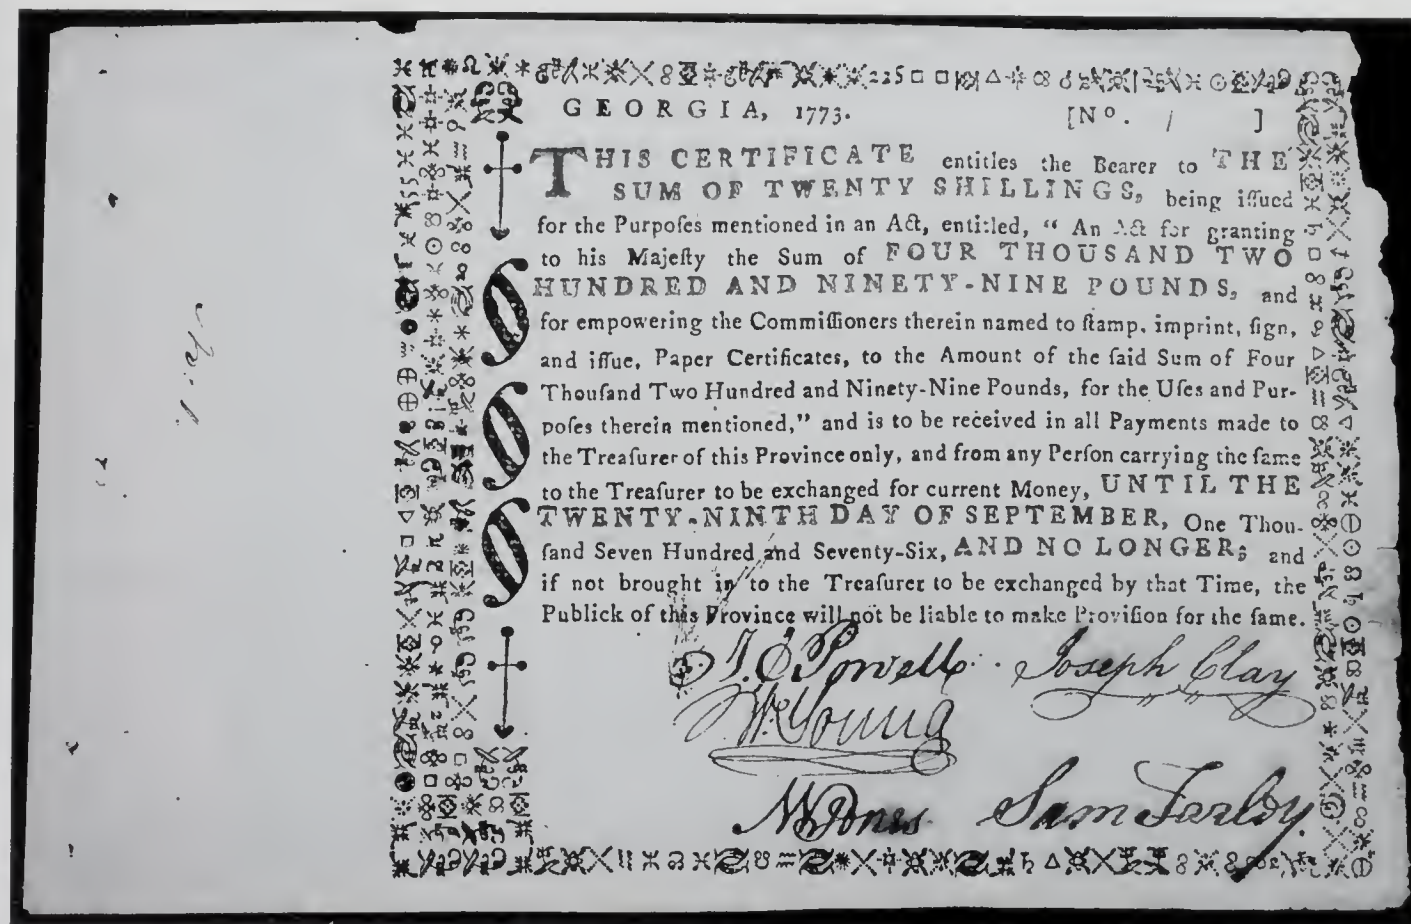 GEORGIA, 1773. [No. 1 ]
THIS CERTIFICATE entitles the Bearer to THE
SUM OF TWENTY SHILLINGS, being iſſued
for the Purpoſes mentioned in an Act, entitled, “ An Act for granting
to his Majeſty the Sum of FOUR THOUSAND TWO
HUNDRED AND NINETY-NINE POUNDS, and
for empowering the Commiſſioners therein named to ſtamp, imprint, ſign,
and iſſue, Paper Certificates, to the Amount of the ſaid Sum of Four
Thouſand Two Hundred and Ninety-Nine Pounds, for the Uſes and Pur-
poſes therein mentioned,” and is to be received in all Payments made to
the Treaſurer of this Province only, and from any Perſon carrying the ſame
to the Treaſurer to be exchanged for current Money, UNTIL THE
TWENTY-NINTH DAY OF SEPTEMBER, One Thou-
ſand Seven Hundred and Seventy-Six, AND NO LONGER; and
if not brought in to the Treaſurer to be exchanged by that Time, the
Publick of this Province will not be liable to make Proviſion for the ſame.
J. E Powell. Joseph Clay
Wm Young
N W Jones Sam Farley.